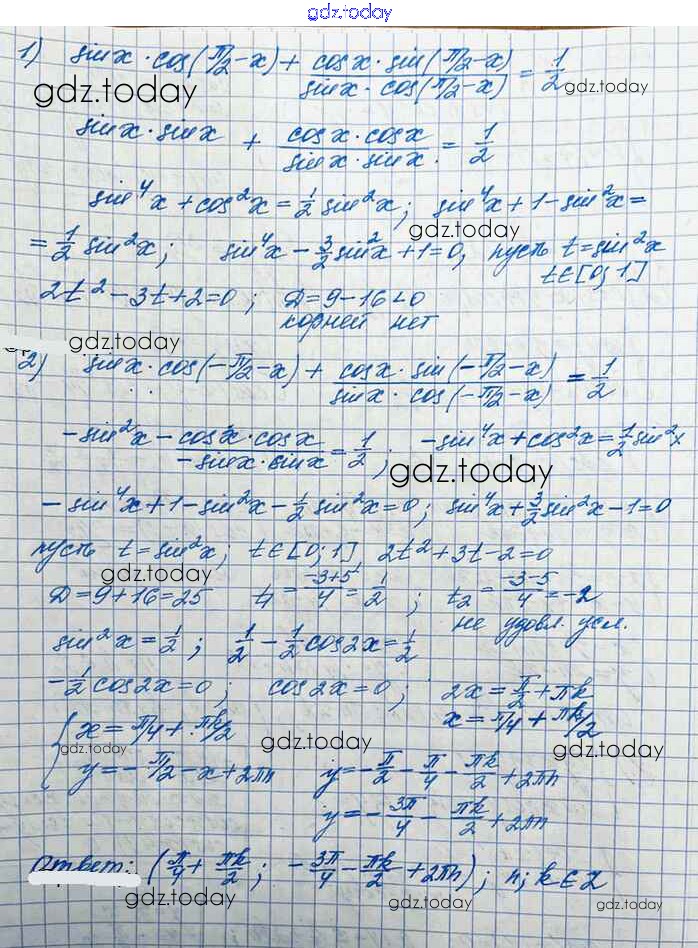 gdz.today
1) sinx·cos(π/2-x) + cosx·sin(π/2-x) / sinx·cos(π/2-x) = 1/2
gdz.today gdz.today
sinx·sinx + cosx·cosx / sinx·sinx = 1/2
sin⁴x + cos²x = 1/2 sin²x; sin⁴x + 1 - sin²x =
gdz.today
= 1/2 sin²x; sin⁴x - 3/2 sin²x + 1 = 0, пусть t = sin²x
t∈[0;1]
2t² - 3t + 2 = 0; D = 9 - 16 < 0
корней нет
gdz.today gdz.today
2) sinx·cos(-π/2-x) + cosx·sin(-π/2-x) / sinx·cos(-π/2-x) = 1/2
-sin²x - cosx·cosx / -sinx·sinx = 1/2; -sin⁴x + cos²x = 1/2 sin²x
gdz.today
-sin⁴x + 1 - sin²x - 1/2 sin²x = 0; sin⁴x + 3/2 sin²x - 1 = 0
пусть t = sin²x; t∈[0;1] 2t² + 3t - 2 = 0
gdz.today gdz.today
D = 9 + 16 = 25 t₁ = -3+5 / 4 = 1/2; t₂ = -3-5 / 4 = -2
не удовл. усл.
sin²x = 1/2; 1/2 - 1/2 cos2x = 1/2
-1/2 cos2x = 0; cos2x = 0; 2x = π/2 + πk
x = π/4 + πk/2
{ x = π/4 + πk/2
gdz.today gdz.today gdz.today
y = -π/2 - x + 2πn y = -π/2 - π/4 - πk/2 + 2πn
y = -3π/4 - πk/2 + 2πn
gdz.today gdz.today
Ответ: (π/4 + πk/2; -3π/4 - πk/2 + 2πn); n; k ∈ Z
gdz.today gdz.today gdz.today